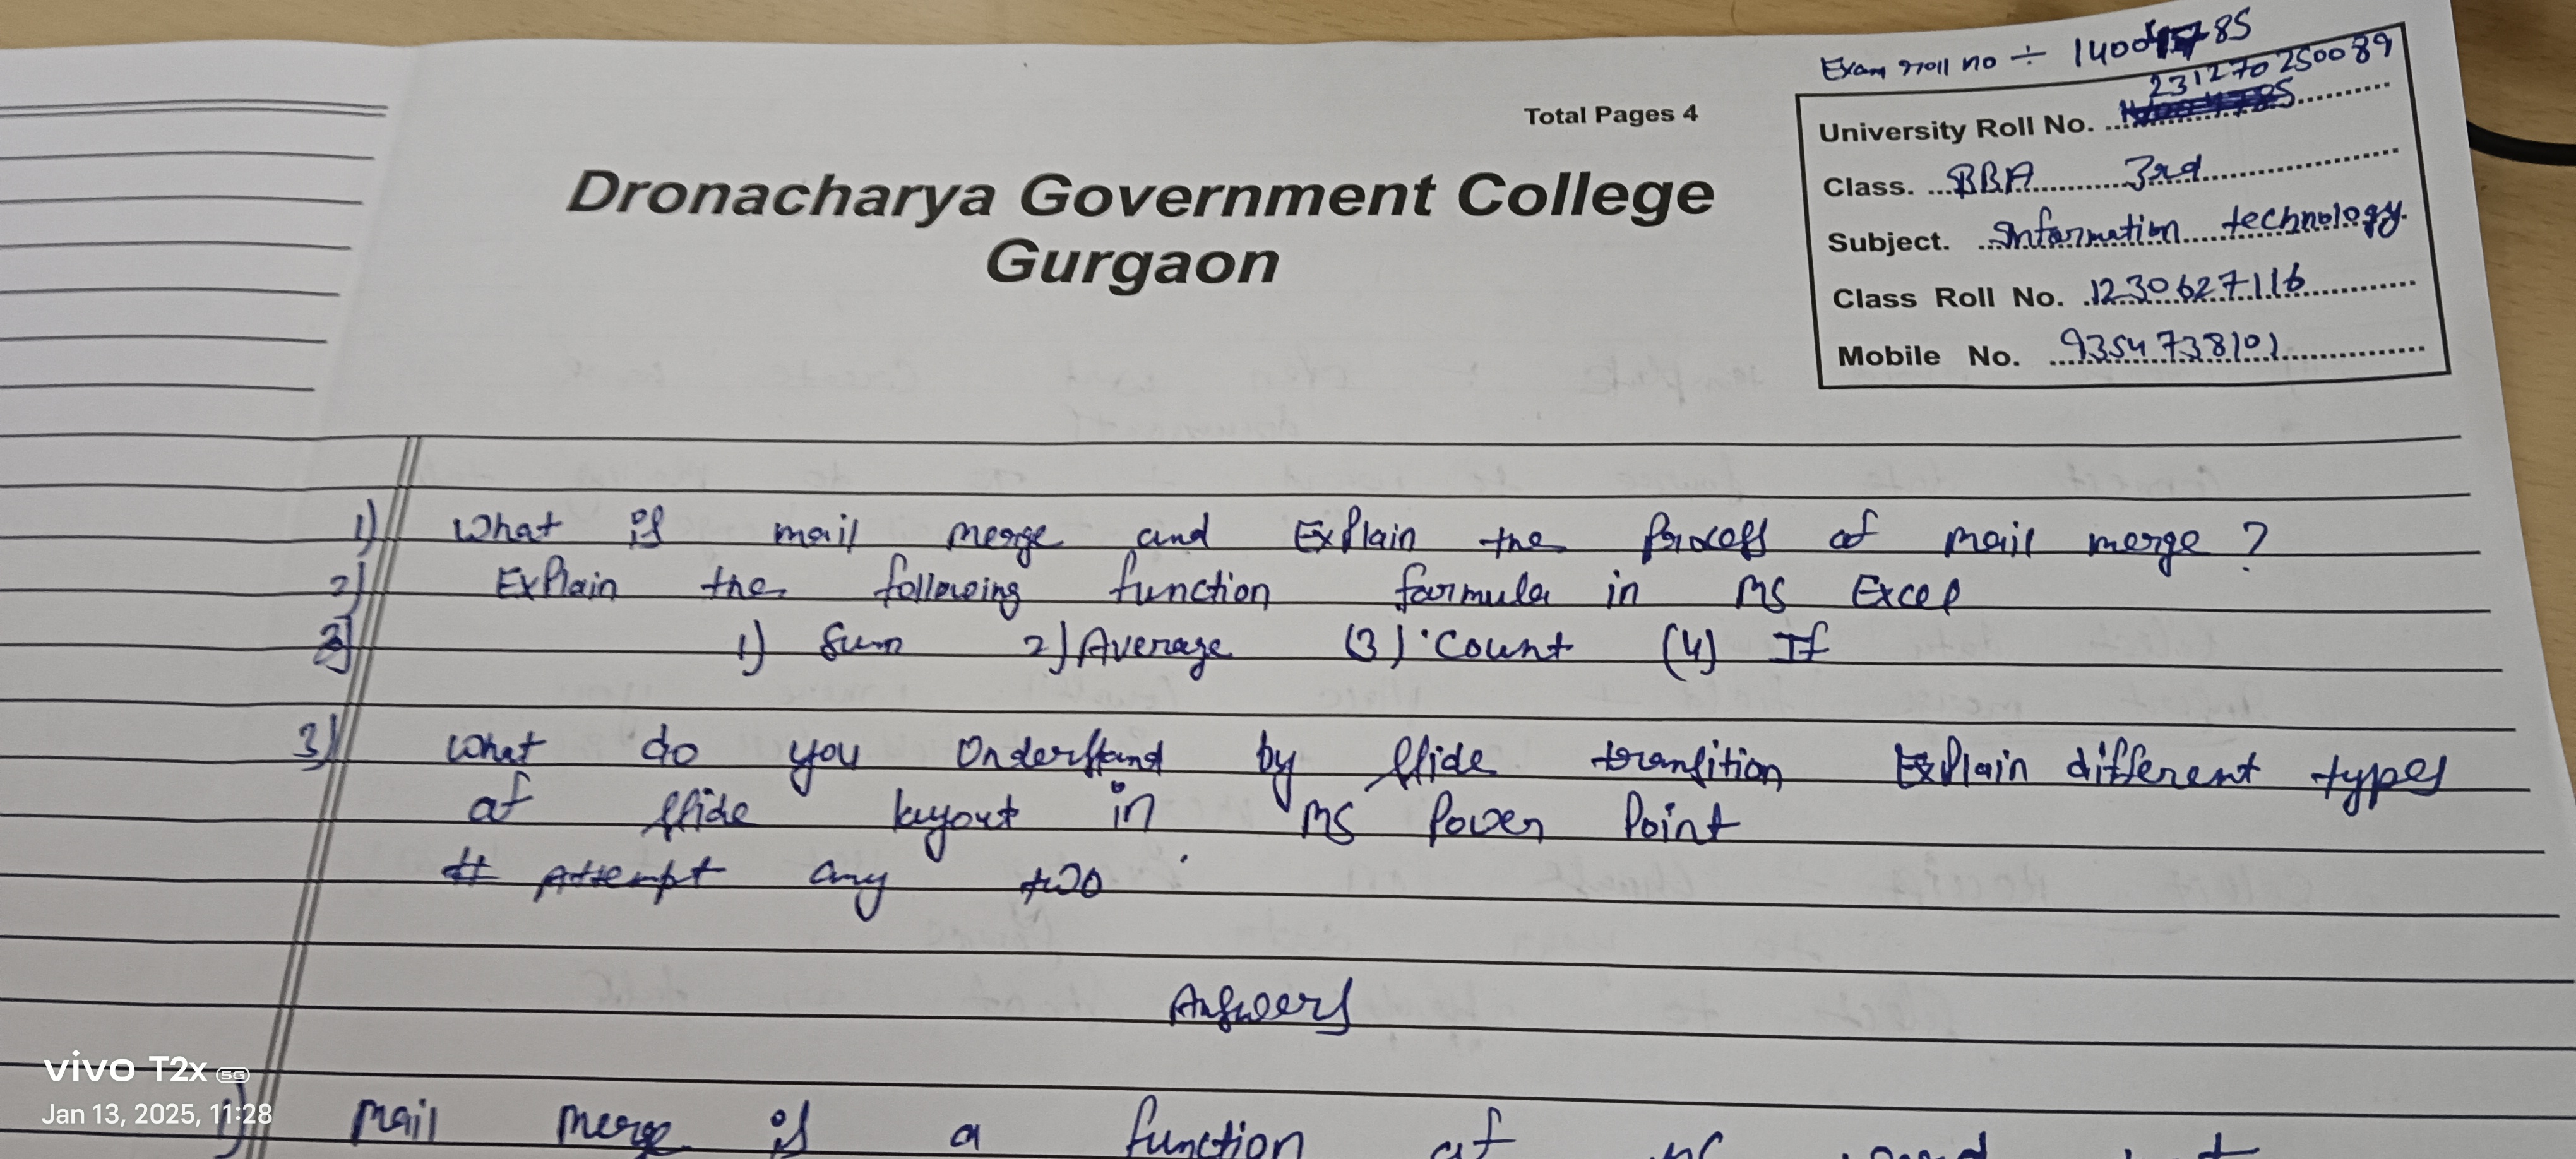 Exam roll no ÷ 85
Total Pages 4
231270250089
University Roll No.
Class. BBA 3rd
Dronacharya Government College
Gurgaon
Subject. Information technology.
Class Roll No. 1230627116
Mobile No. 9354738101
1) What is mail merge and Explain the Process of mail merge ?
2) Explain the following function formula in MS Excel
1) Sum 2) Average (3) Count (4) If
3) What do you Understand by slide transition Explain different types
of slide layout in MS Power Point
# Attempt any two
Answers
vivo T2x 5G
Jan 13, 2025, 11:28
1) Mail merge is a function of